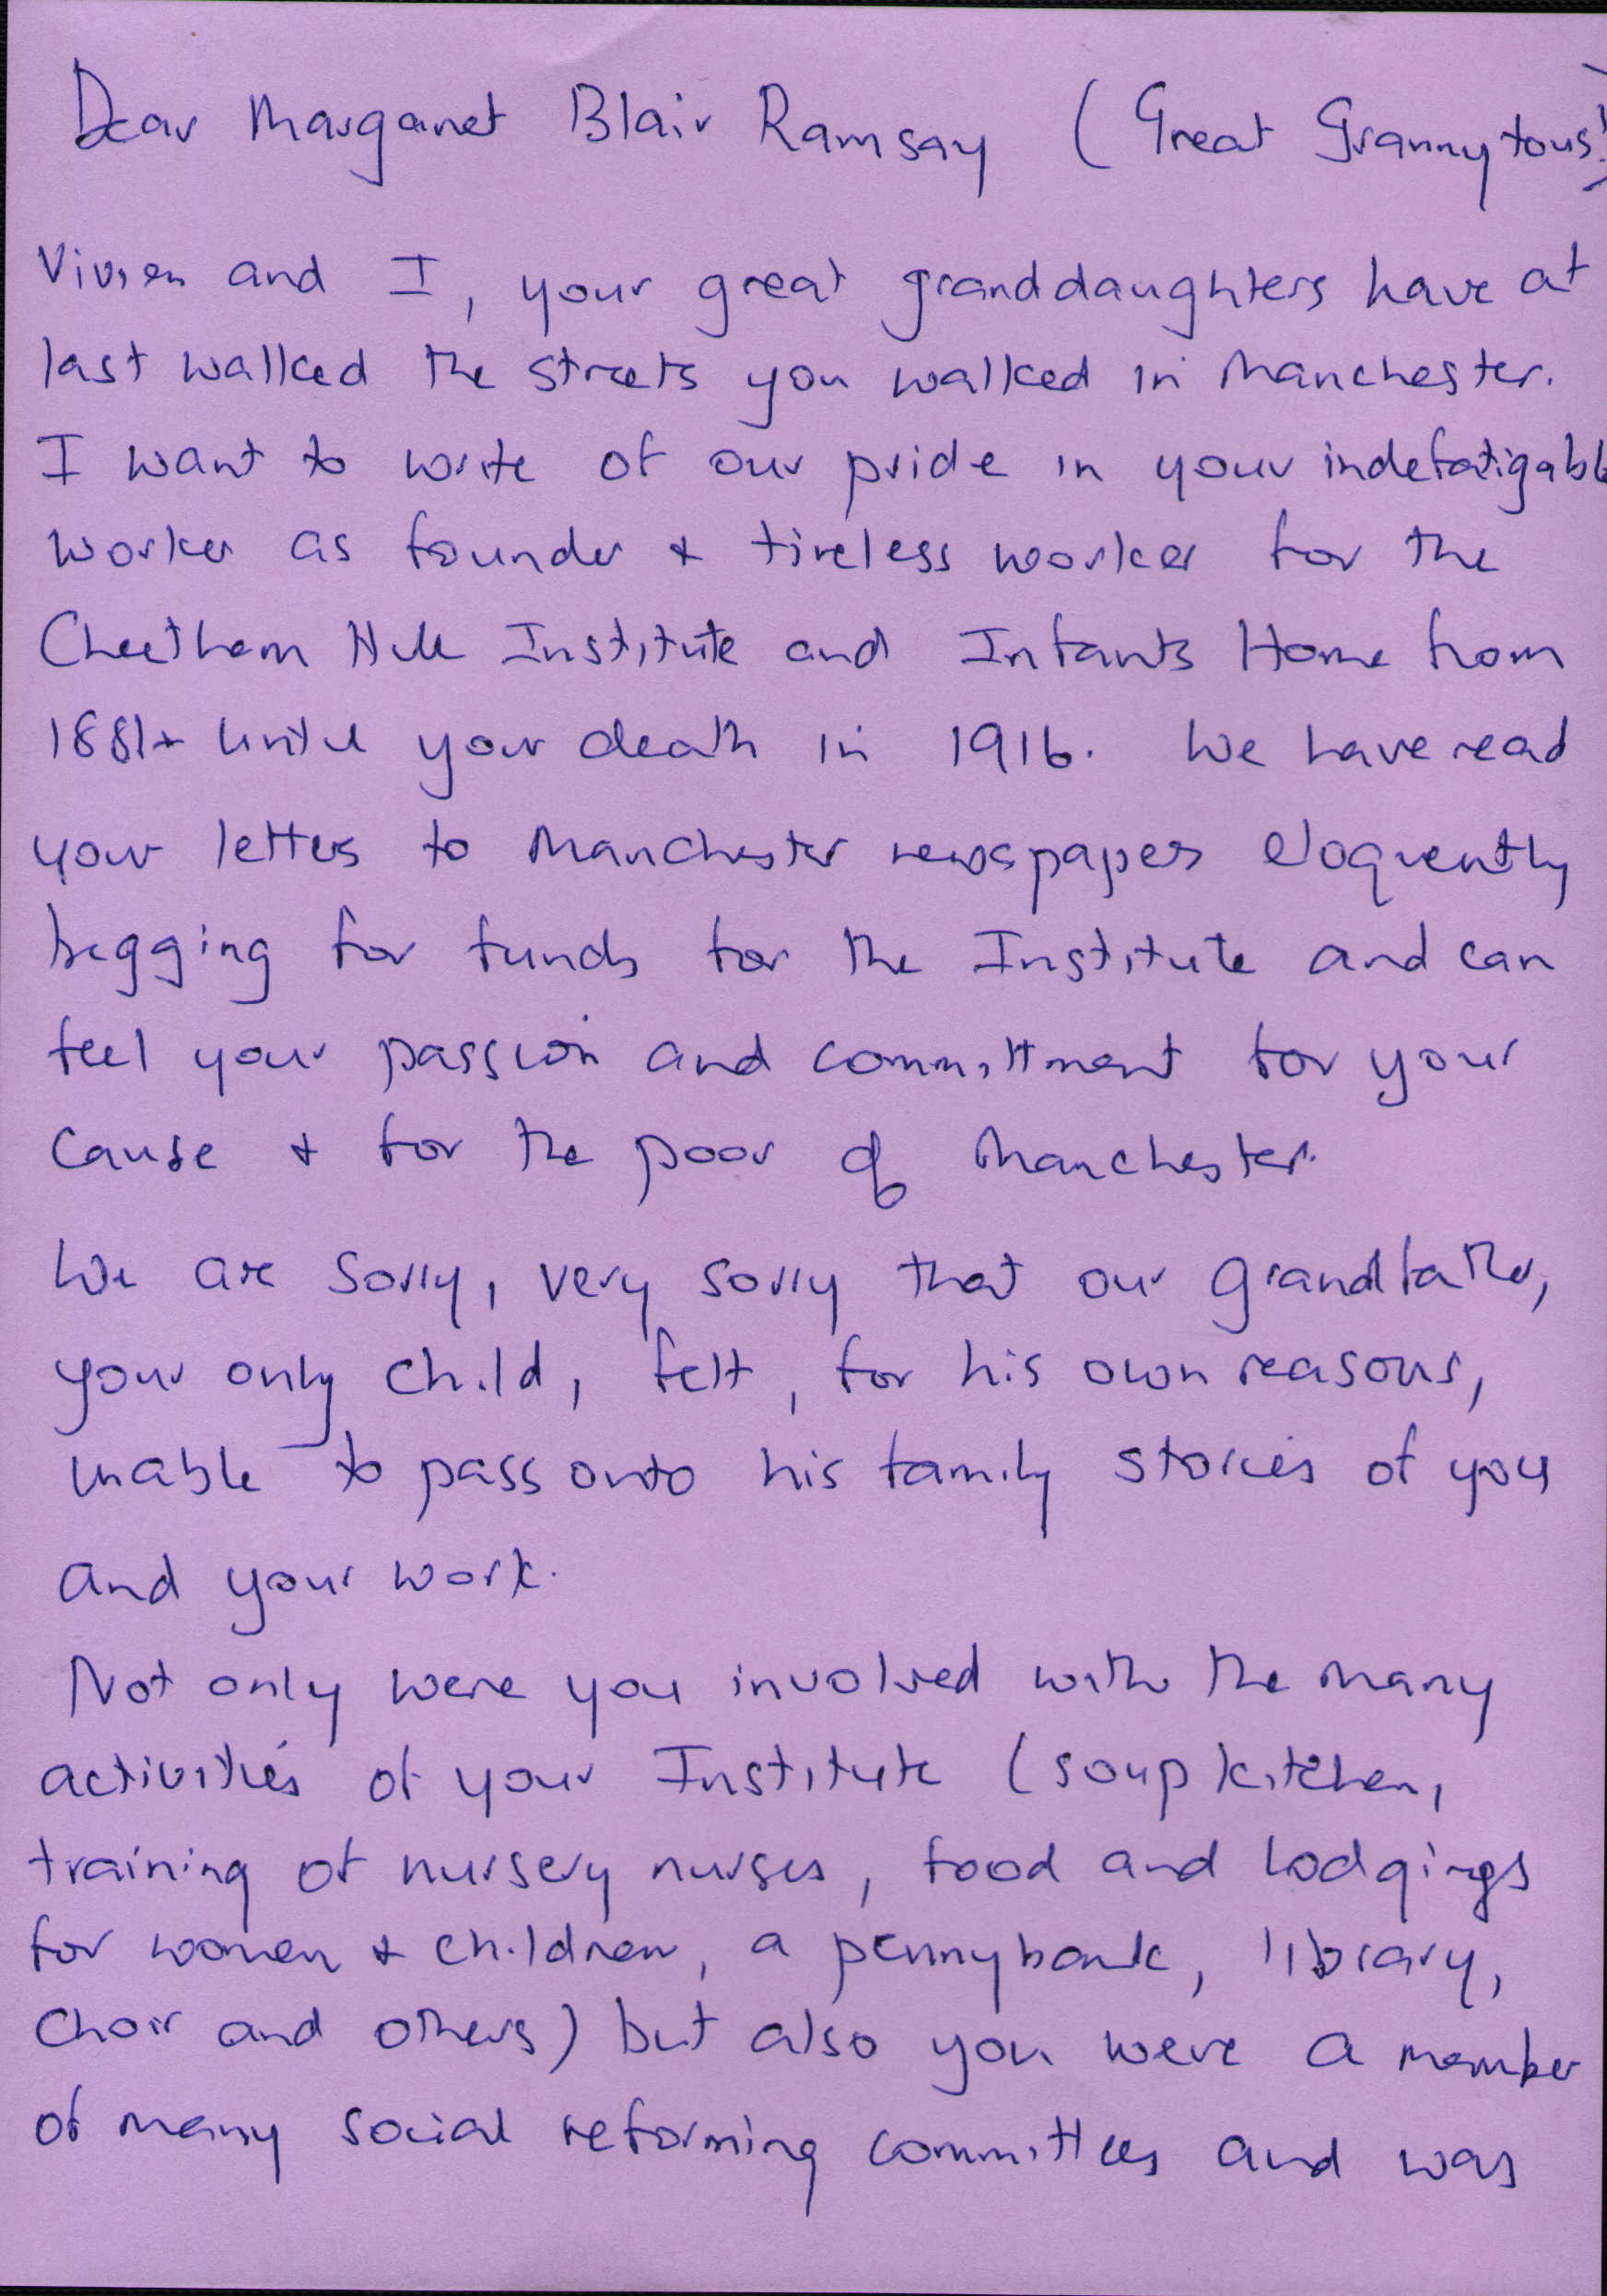 Dear Margaret Blair Ramsay (Great Granny to us!)
Vivien and I, your great granddaughters have at
last walked the streets you walked in Manchester.
I want to write of our pride in your indefatigable
worker as founder & tireless worker for the
Cheetham Hill Institute and Infants Home from
1881+ until your death in 1916. We have read
your letters to Manchester newspapers eloquently
begging for funds for the Institute and can
feel your passion and committment for your
cause & for the poor of Manchester.
We are sorry, very sorry that our grandfather,
your only child, felt, for his own reasons,
unable to pass onto his family stories of you
and your work.
Not only were you involved with the many
activities of your Institute (soup kitchen,
training of nursery nurses, food and lodgings
for women & children, a pennybank, library,
choir and others) but also you were a member
of many social reforming committees and was